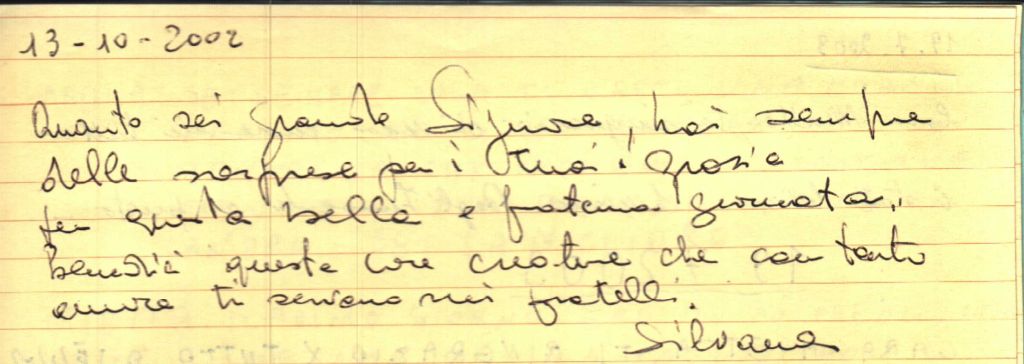 13-10-2002
Quanto sei grande Signore, hai sempre
delle sorprese per i tuoi! grazie
per questa bella e fraterna giornata.
Benedici queste care creature che con tanto
amore ti servono nei fratelli.
Silvana